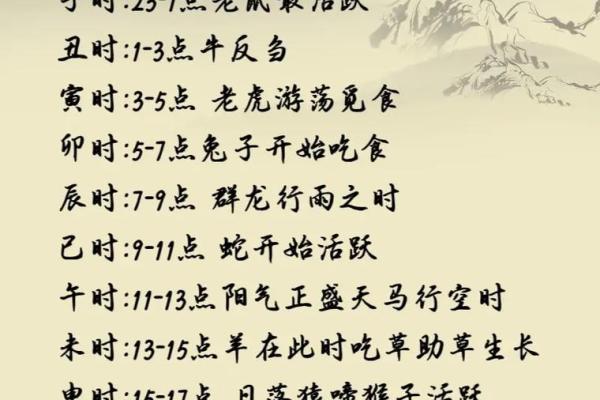 子时:23-1点老鼠最活跃
丑时:1-3点牛反刍
寅时:3-5点 老虎游荡觅食
卯时:5-7点兔子开始吃食
辰时:7-9点 群龙行雨之时
已时:9-11点 蛇开始活跃
午时:11-13点阳气正盛天马行空时
未时:13-15点羊在此时吃草助草生长
申时:15-17点 日落猿啼猴子活跃